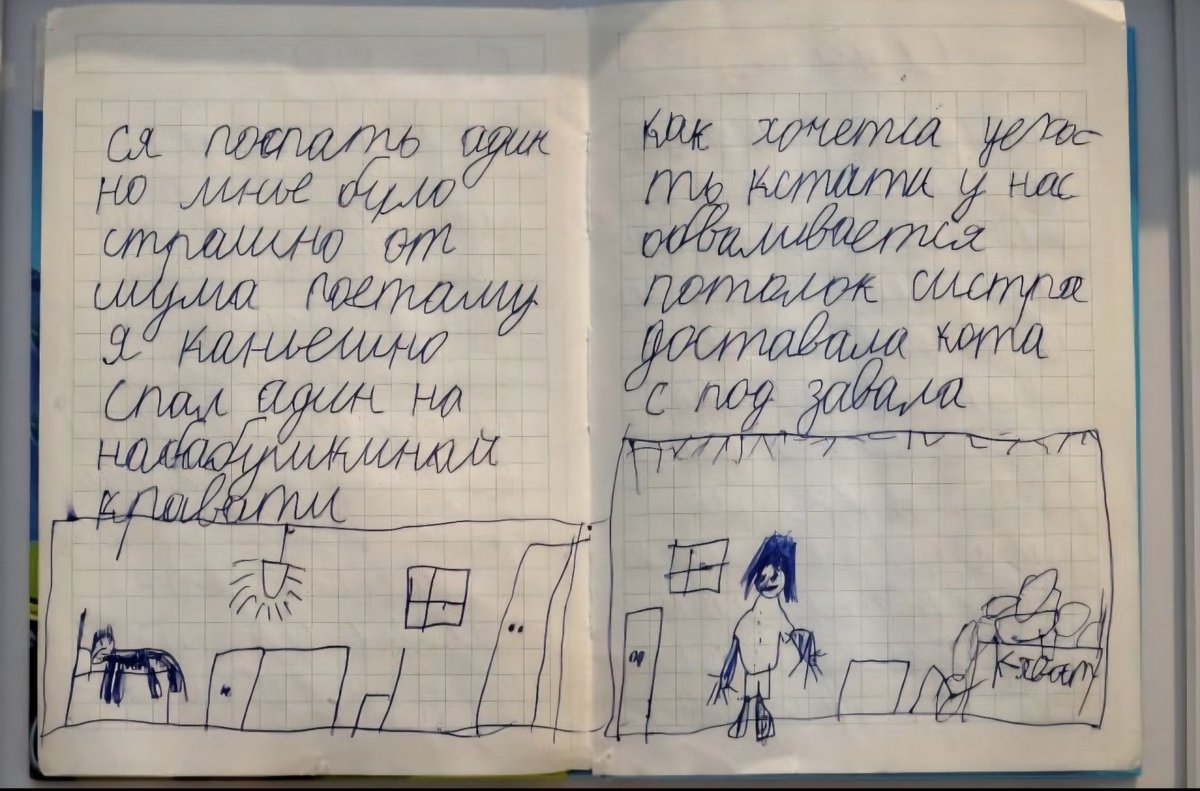 ся поспать адин
но мнье було
страшно от
шума поетаму
я каньешно
спал адин на
набабушкинай
кравати
как хочетса уеха-
ть кстати у нас
обваливается
потолок систра
доставала кота
с под завала